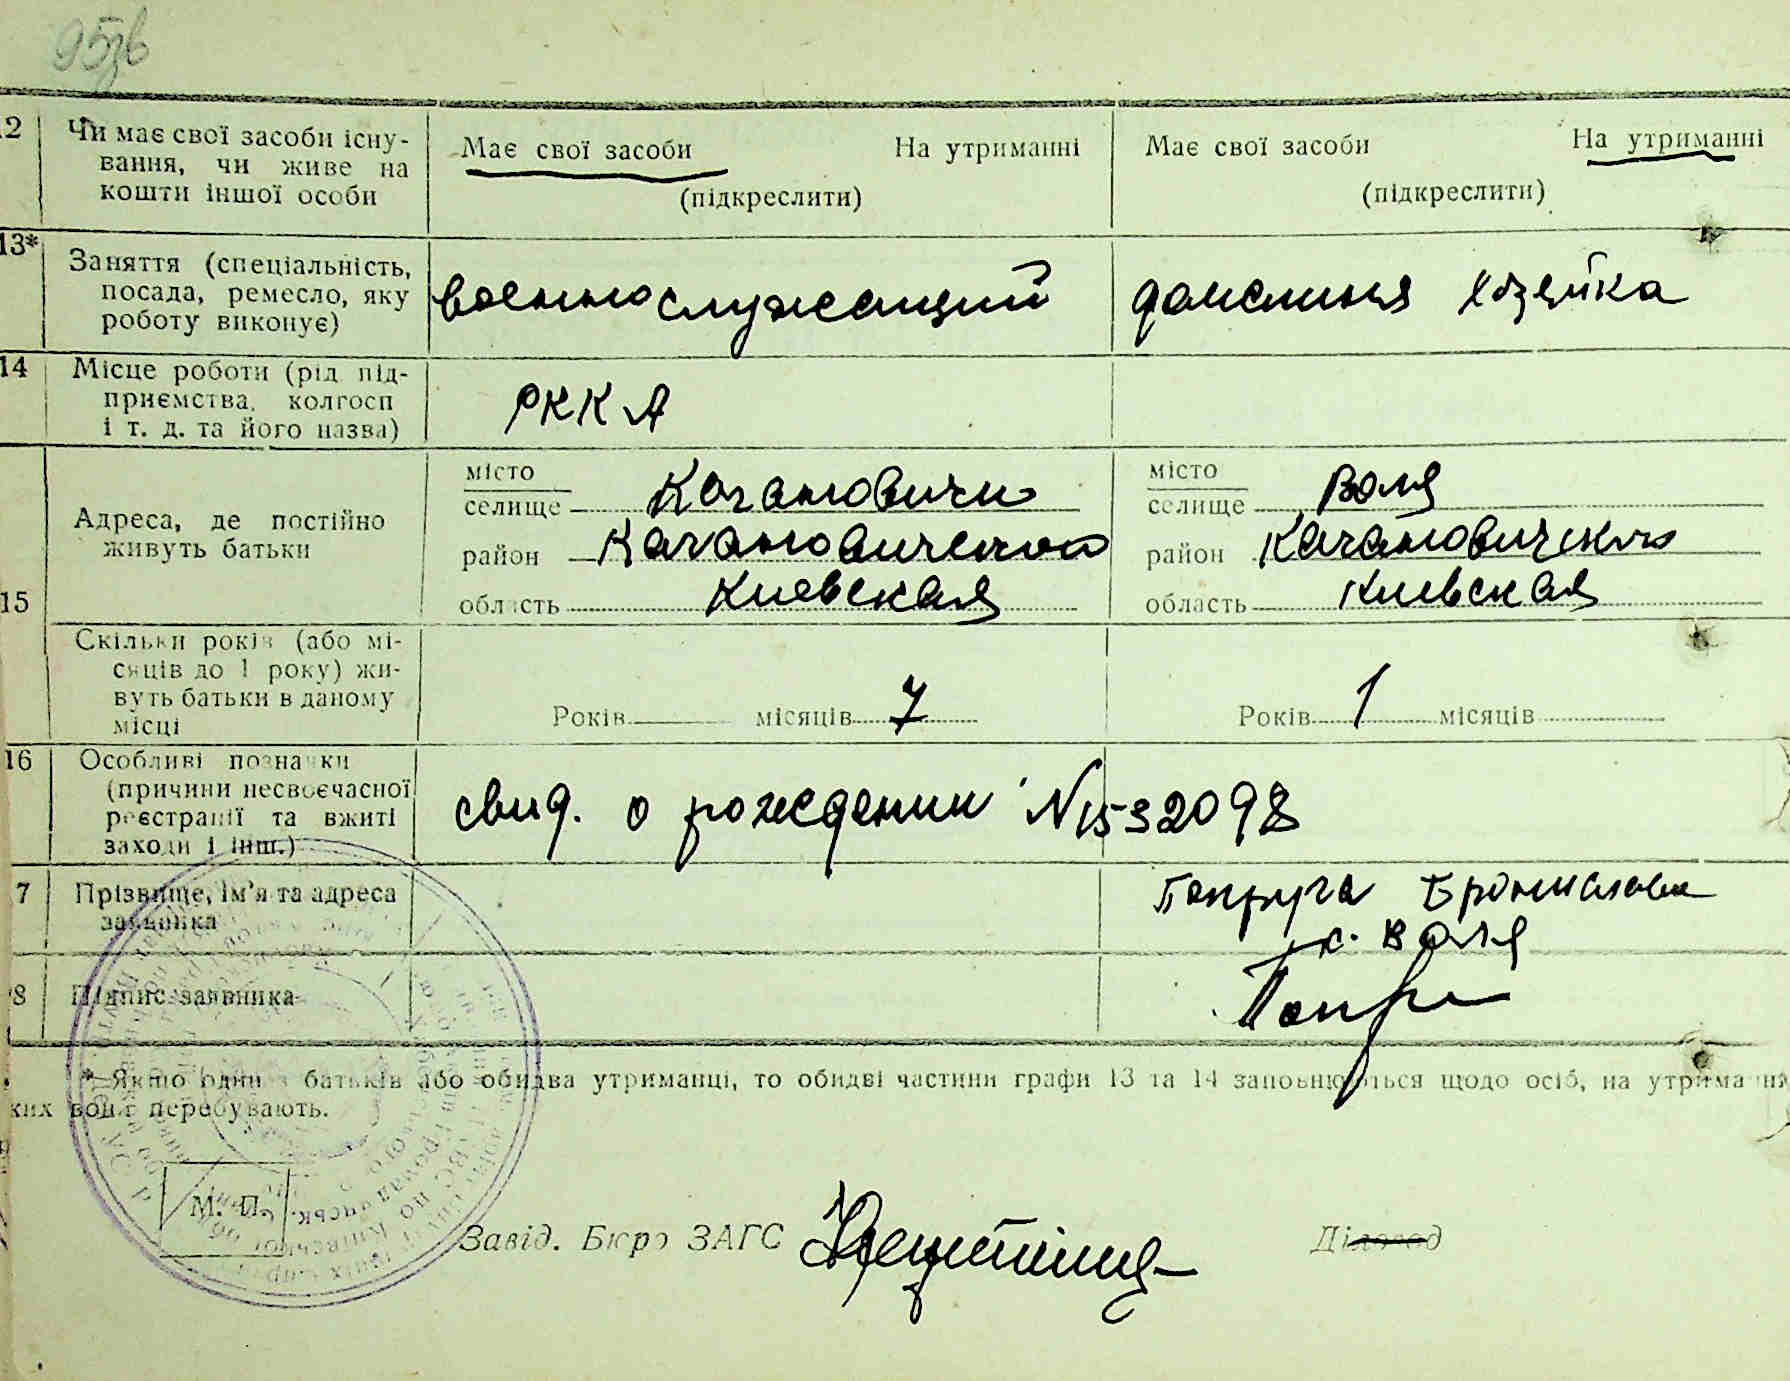 95зв
12 Чи має свої засоби існу-
вання, чи живе на
кошти іншої особи
Має свої засоби На утриманні
(підкреслити)
Має свої засоби На утриманні
(підкреслити)
13*
Заняття (спеціальність,
посада, ремесло, яку
роботу виконує)
военнослужащий
домашняя хозяйка
14 Місце роботи (рід під-
приємства, колгосп
і т. д. та його назва)
РККА
15
Адреса, де постійно
живуть батьки
місто
селище Кагановичи
район Кагановический
область Киевская
місто
селище Воля
район Кагановический
область Киевская
Скільки років (або мі-
сяців до 1 року) жи-
вуть батьки в даному
місці
Років місяців 7
Років 1 місяців
16 Особливі позначки
(причини несвоєчасної
реєстрації та вжиті
заходи і інш.)
свид. о рождении N 532098
7 Прізвище, ім'я та адреса
заявника
Бронислава
с. Воля
8 Підпис заявника
*—Якщо один з батьків або обидва утриманці, то обидві частини графи 13 та 14 заповнюються щодо осіб, на утриманні
ких вони перебувають.
М. П.
Завід. Бюро ЗАГС
Діловод